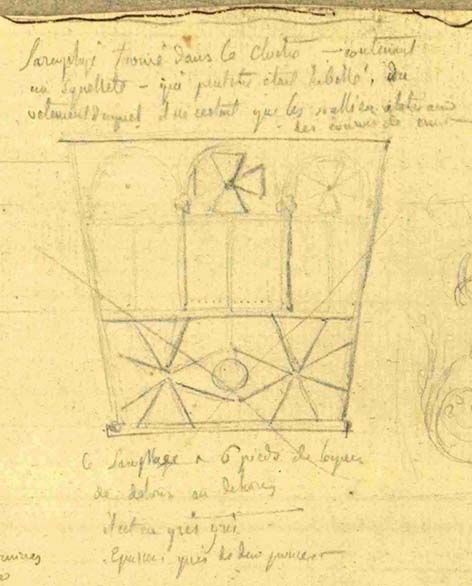 Sarcophage trouvé dans le cloitre — contenant
un squellete — qui peut etre était habillé, du
vetement duquel il ne restait que les
des
ce Sarcophage a 6 pieds de longueur
de dehors en dehors
il est en grès gris
Epaisseur près de deux pouces